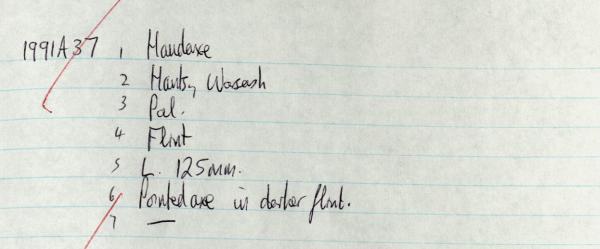 1991A37 1 Handaxe
2 Hants, Warsash
3 Pal.
4 Flint
5 L. 125mm.
6 Pointed axe in darker flint.
7 —